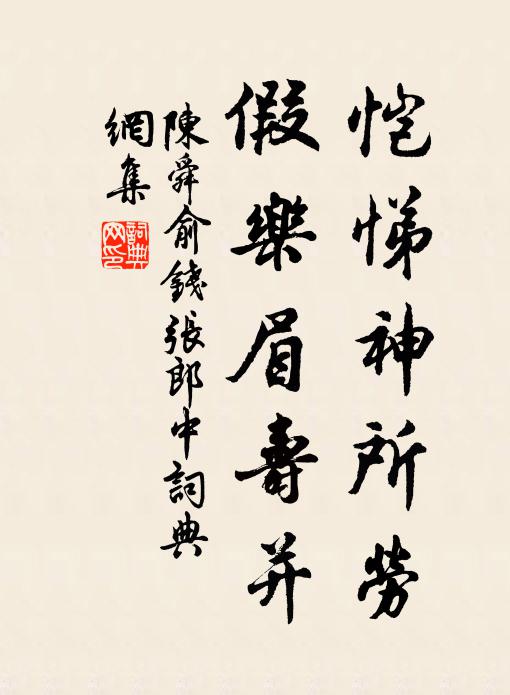 愷悌神所勞
假樂眉壽并
陳舜俞錢張郎中詞典
網集
詞典网印